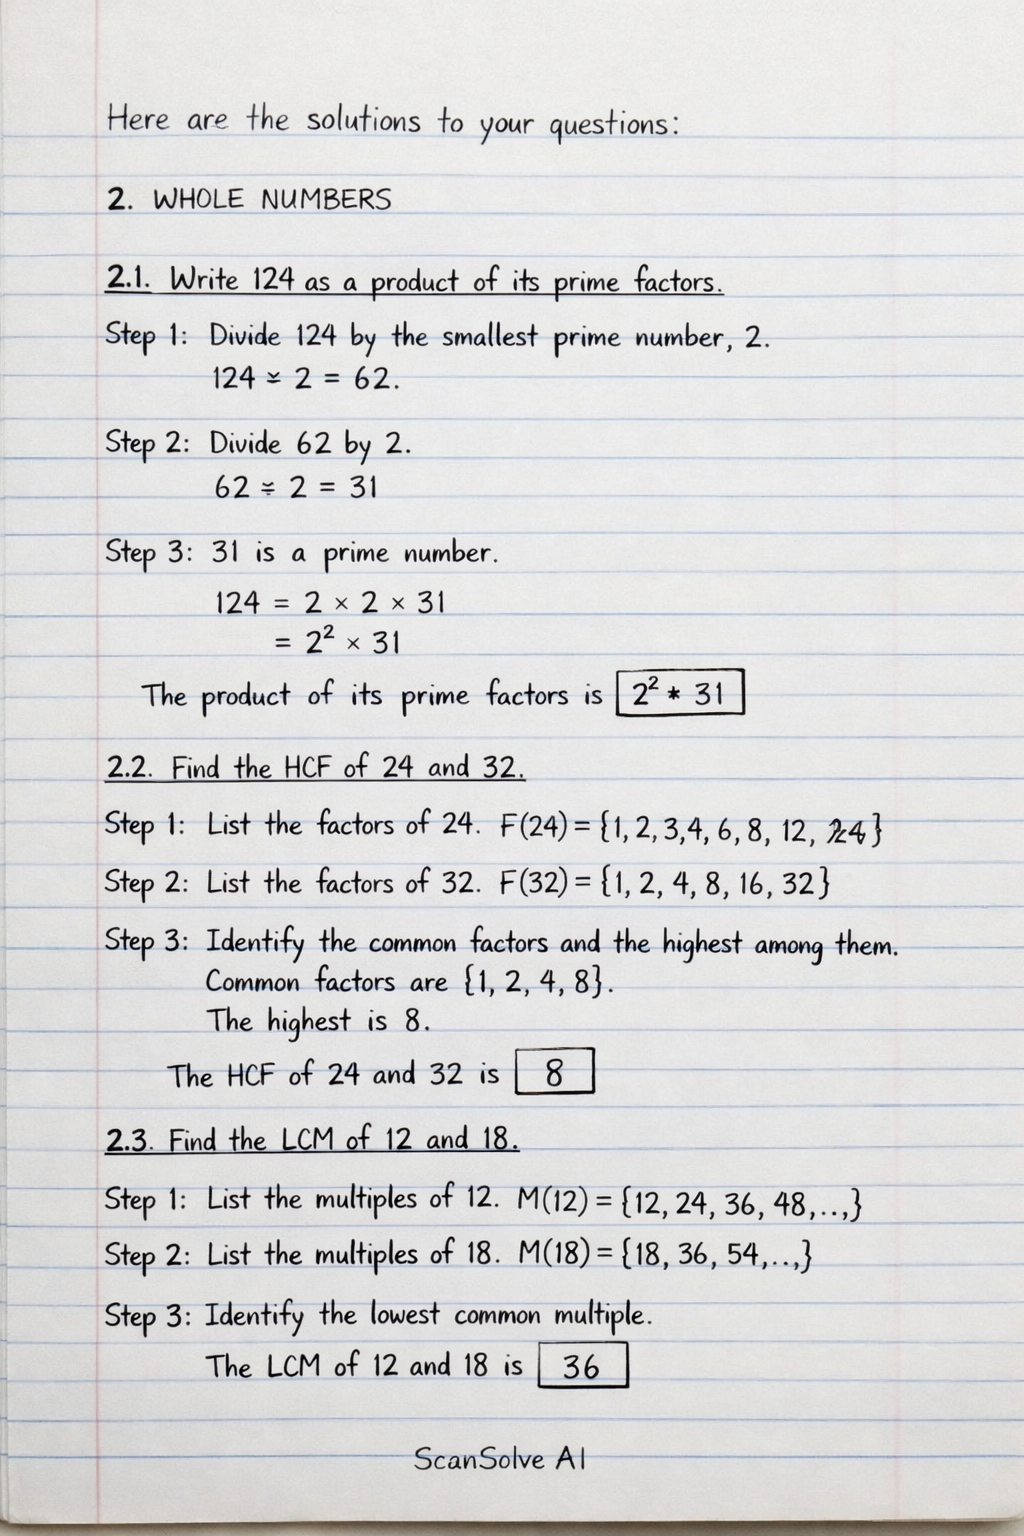 Here are the solutions to your questions:
2. WHOLE NUMBERS
2.1. Write 124 as a product of its prime factors.
Step 1: Divide 124 by the smallest prime number, 2.
124 ÷ 2 = 62.
Step 2: Divide 62 by 2.
62 ÷ 2 = 31
Step 3: 31 is a prime number.
124 = 2 × 2 × 31
= 2² × 31
The product of its prime factors is 2² * 31
2.2. Find the HCF of 24 and 32.
Step 1: List the factors of 24. F(24) = {1, 2, 3,4, 6, 8, 12, 24}
Step 2: List the factors of 32. F(32) = {1, 2, 4, 8, 16, 32}
Step 3: Identify the common factors and the highest among them.
Common factors are {1, 2, 4, 8}.
The highest is 8.
The HCF of 24 and 32 is 8
2.3. Find the LCM of 12 and 18.
Step 1: List the multiples of 12. M(12) = {12, 24, 36, 48,..,}
Step 2: List the multiples of 18. M(18) = {18, 36, 54,..,}
Step 3: Identify the lowest common multiple.
The LCM of 12 and 18 is 36
ScanSolve AI